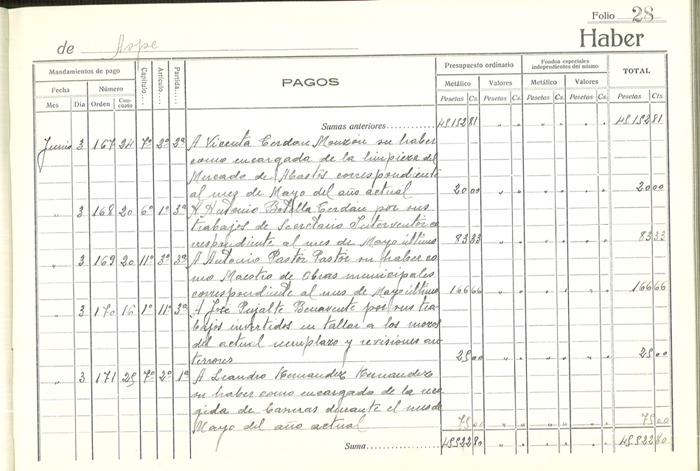 Folio 28
de Aspe
Haber
Mandamientos de pago
Fecha Número
Mes Día Orden Concepto
Capítulo.... Artículo.... Partida....
PAGOS
Presupuesto ordinario
Metálico Valores
Pesetas Cs. Pesetas Cs.
Fondos especiales independientes del mismo
Metálico Valores
Pesetas Cs. Pesetas Cs.
TOTAL
Pesetas Cts.
Sumas anteriores
Junio 3 167 24 7º 2º 2ª A Vicenta Cerdan Monzon su haber
como encargada de la limpieza del
Mercado de Abastos correspondiente
al mes de Mayo del año actual 20 00 20 00
" 3 168 20 6º 1º 3ª A Antonio Botella Cerdán por sus
trabajos de Secretario Interventor co
rrespondiente al mes de Mayo último 83 33 83 33
" 3 169 20 11º 3º 3ª A Antonio Pastor Pastor su haber co
mo Maestro de Obras municipales
correspondiente al mes de Mayo último 166 66 166 66
" 3 170 16 1º 11º 3ª A José Pujalte Benavente por sus tra
bajos invertidos en tallar a los mozos
del actual reemplazo y revisiones an
teriores 25 00 25 00
" 3 171 25 7º 2º 1ª A Leandro Hernandez Hernandez
su haber como encargado de la reco
gida de basuras durante el mes de
Mayo del año actual 75 00 75 00
Suma